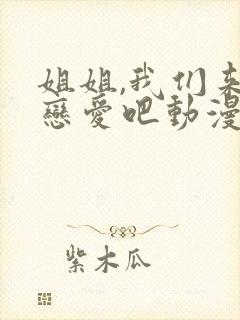 姐姐,我们来
戀愛吧動漫
紫木瓜